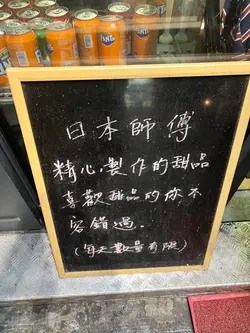 FANTA
日本師傅
精心製作的甜品
喜歡甜品的你不
容錯過.
(每天數量有限)